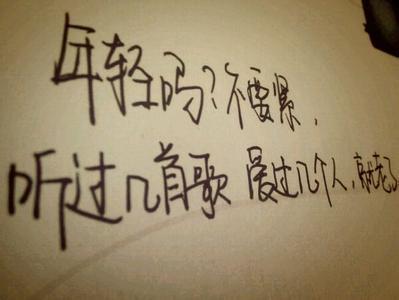 年轻吗?不要紧,
听过几首歌 爱过几个人,就老了